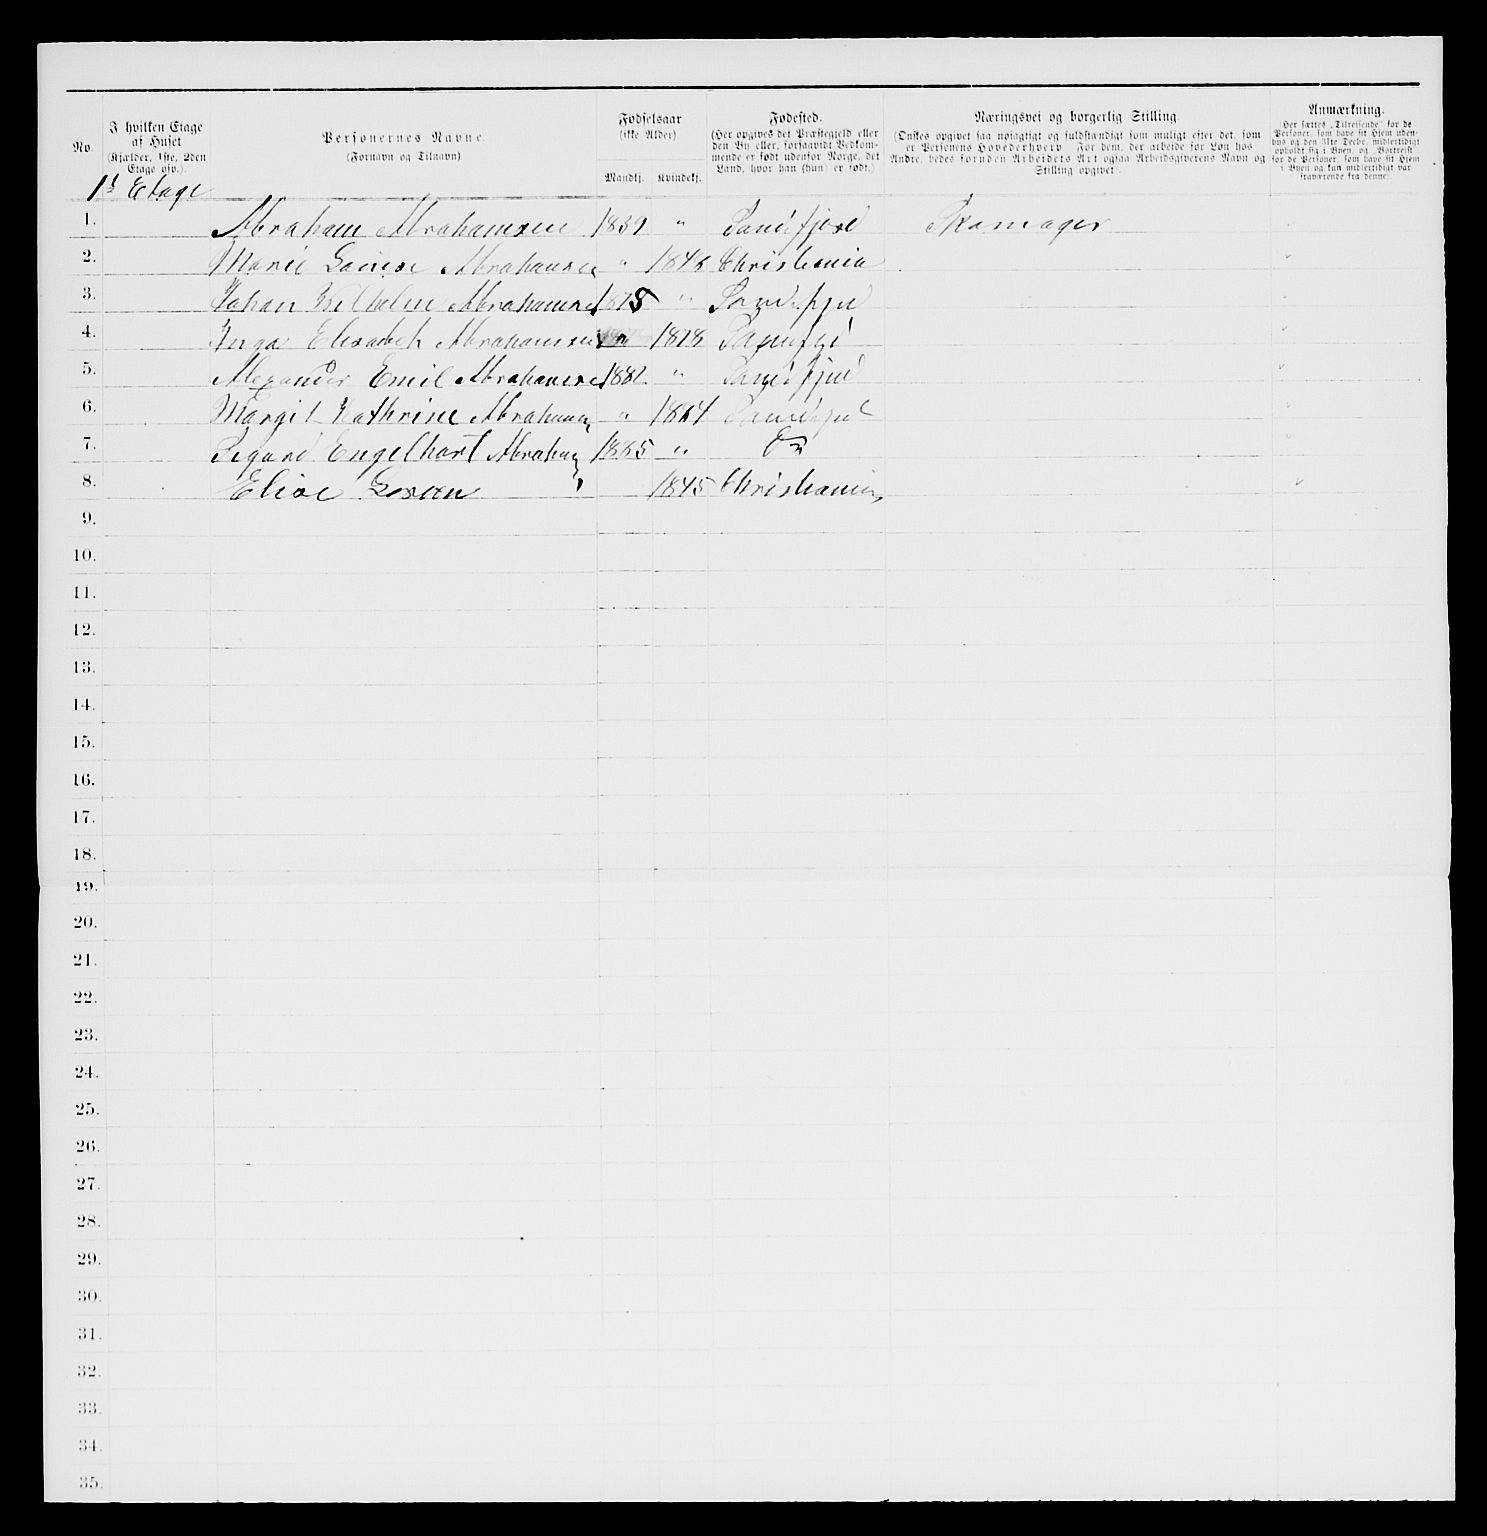 No.
I hvilken Etage af Huset (Kjælder, 1ste, 2den Etage osv.).
Personernes Navne. (Fornavn og Tilnavn)
Fødselsaar (ikke Alder) Mandkj. Kvindekj.
Fødested. (Her opgives det Præstegjeld eller den By eller, forsaavidt Vedkommende er født udenfor Norge, det Land, hvor han (hun) er født.)
Næringsvei og borgerlig Stilling (Ønskes opgivet saa nøiagtigt og fuldstændigt som muligt efter det, som er Personens Hovederhverv. For dem, der arbeide for Løn hos Andre, bedes foruden Arbeidets Art ogsaa Arbeidsgiverens Navn og Stilling opgivet).
Anmærkning. (Her sættes „Tilreisende" for de Personer, som have sit Hjem udenbys og den 31te Decbr. midlertidigt opholdt sig i Byen, og „Bortreist" for de Personer, som have sit Hjem i Byen og kun midlertidigt var fraværende fra denne).
1st Etage
1. Abraham Abrahamsen 1839 " Sandefjord Skomager
2. Marie Louise Abrahamsen " 1848 Christiania "
3. Johan Vilhelm Abrahamsen 1875 " Sandefjord "
4. Inga Elisabeth Abrahamsen " 1878 Sandefjord "
5. Alexander Emil Abrahamsen 1881 " Sandefjord "
6. Margit Kathrine Abrahamsen " 1884 Sandefjord "
7. Sigurd Engelhart Abrahamsen 1885 " Do "
8. Elise 1845 Christiania "
9.
10.
11.
12.
13.
14.
15.
16.
17.
18.
19.
20.
21.
22.
23.
24.
25.
26.
27.
28.
29.
30.
31.
32.
33.
34.
35.